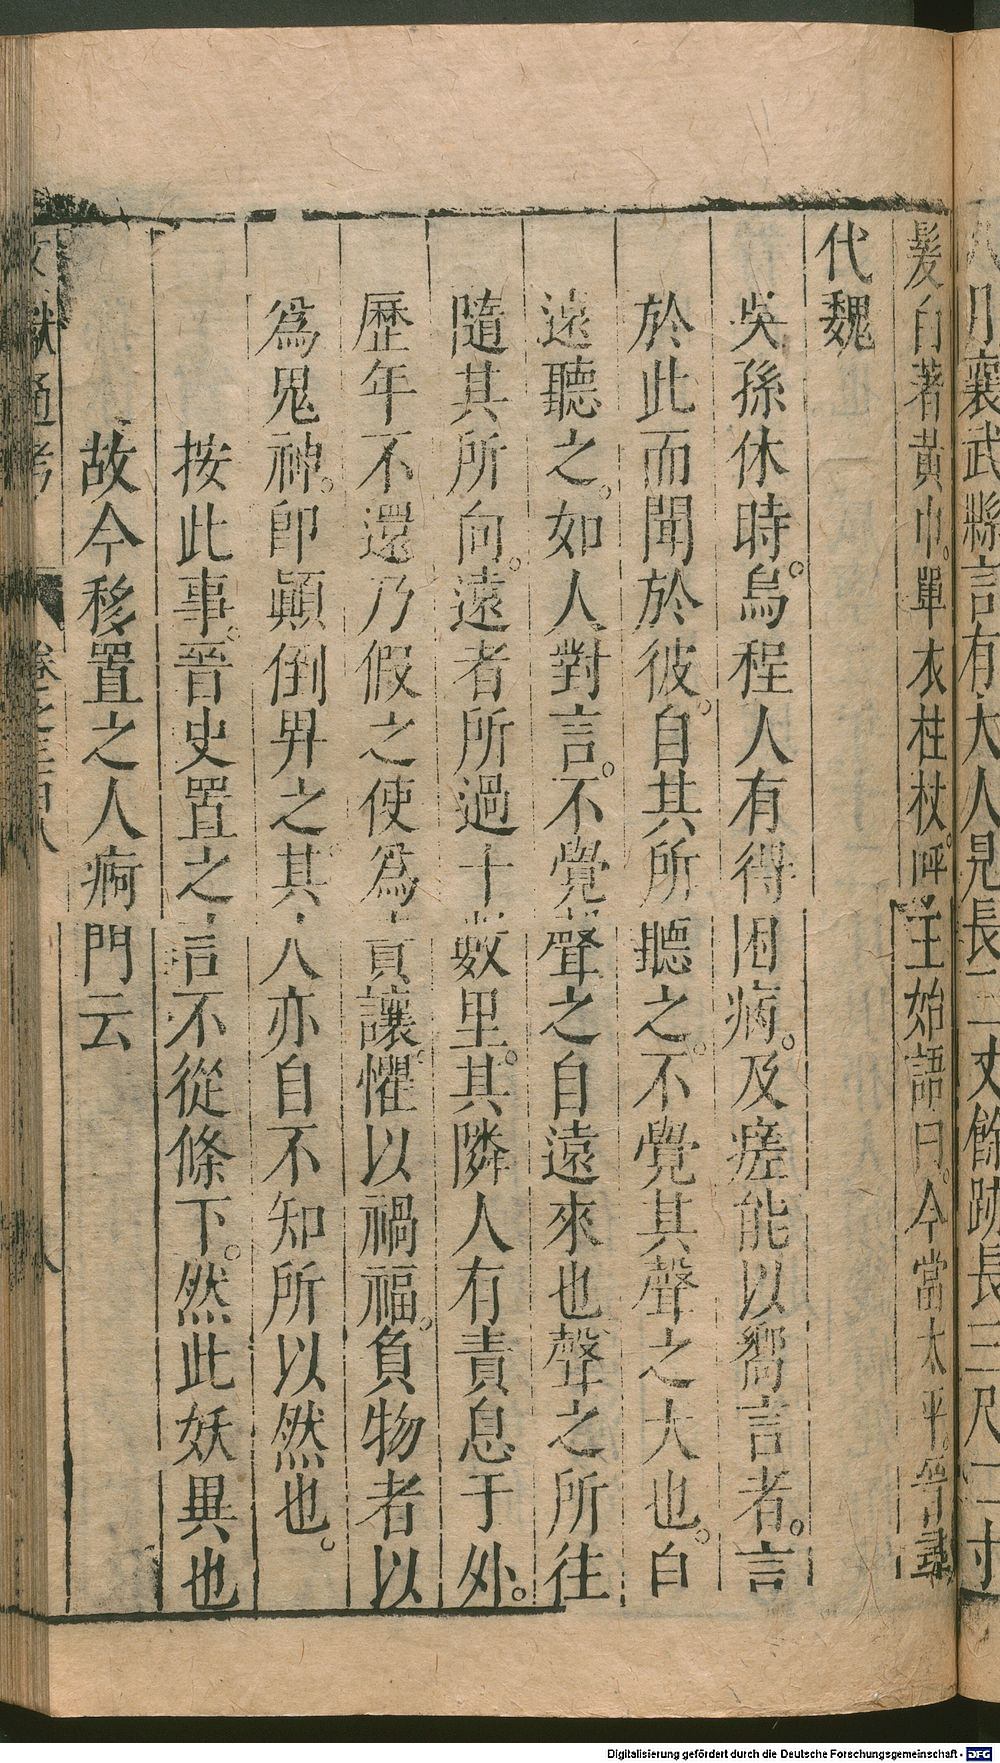 八月襄武縣言有大人見長三丈餘跡長三尺二寸
髮白著黃巾。單衣柱杖。呼王始語曰。今當太平。晉尋
代魏
吳孫休時。烏程人有得困病。及瘥能以嚮言者。言
於此而聞於彼。自其所聽之。不覺其聲之大也。自
遠聽之。如人對言。不覺聲之自遠來也聲之所往
隨其所向。遠者所過十數里。其隣人有責息于外。
歷年不還乃假之使爲責讓。懼以禍福。負物者以
爲鬼神。卽顚倒畀之。其人亦自不知所以然也。
按此事。晉史置之言不從條下。然此妖異也
故今移置之人痾門云
文獻通考 卷之三百八 八
Digitalisierung gefördert durch die Deutsche Forschungsgemeinschaft - DFG